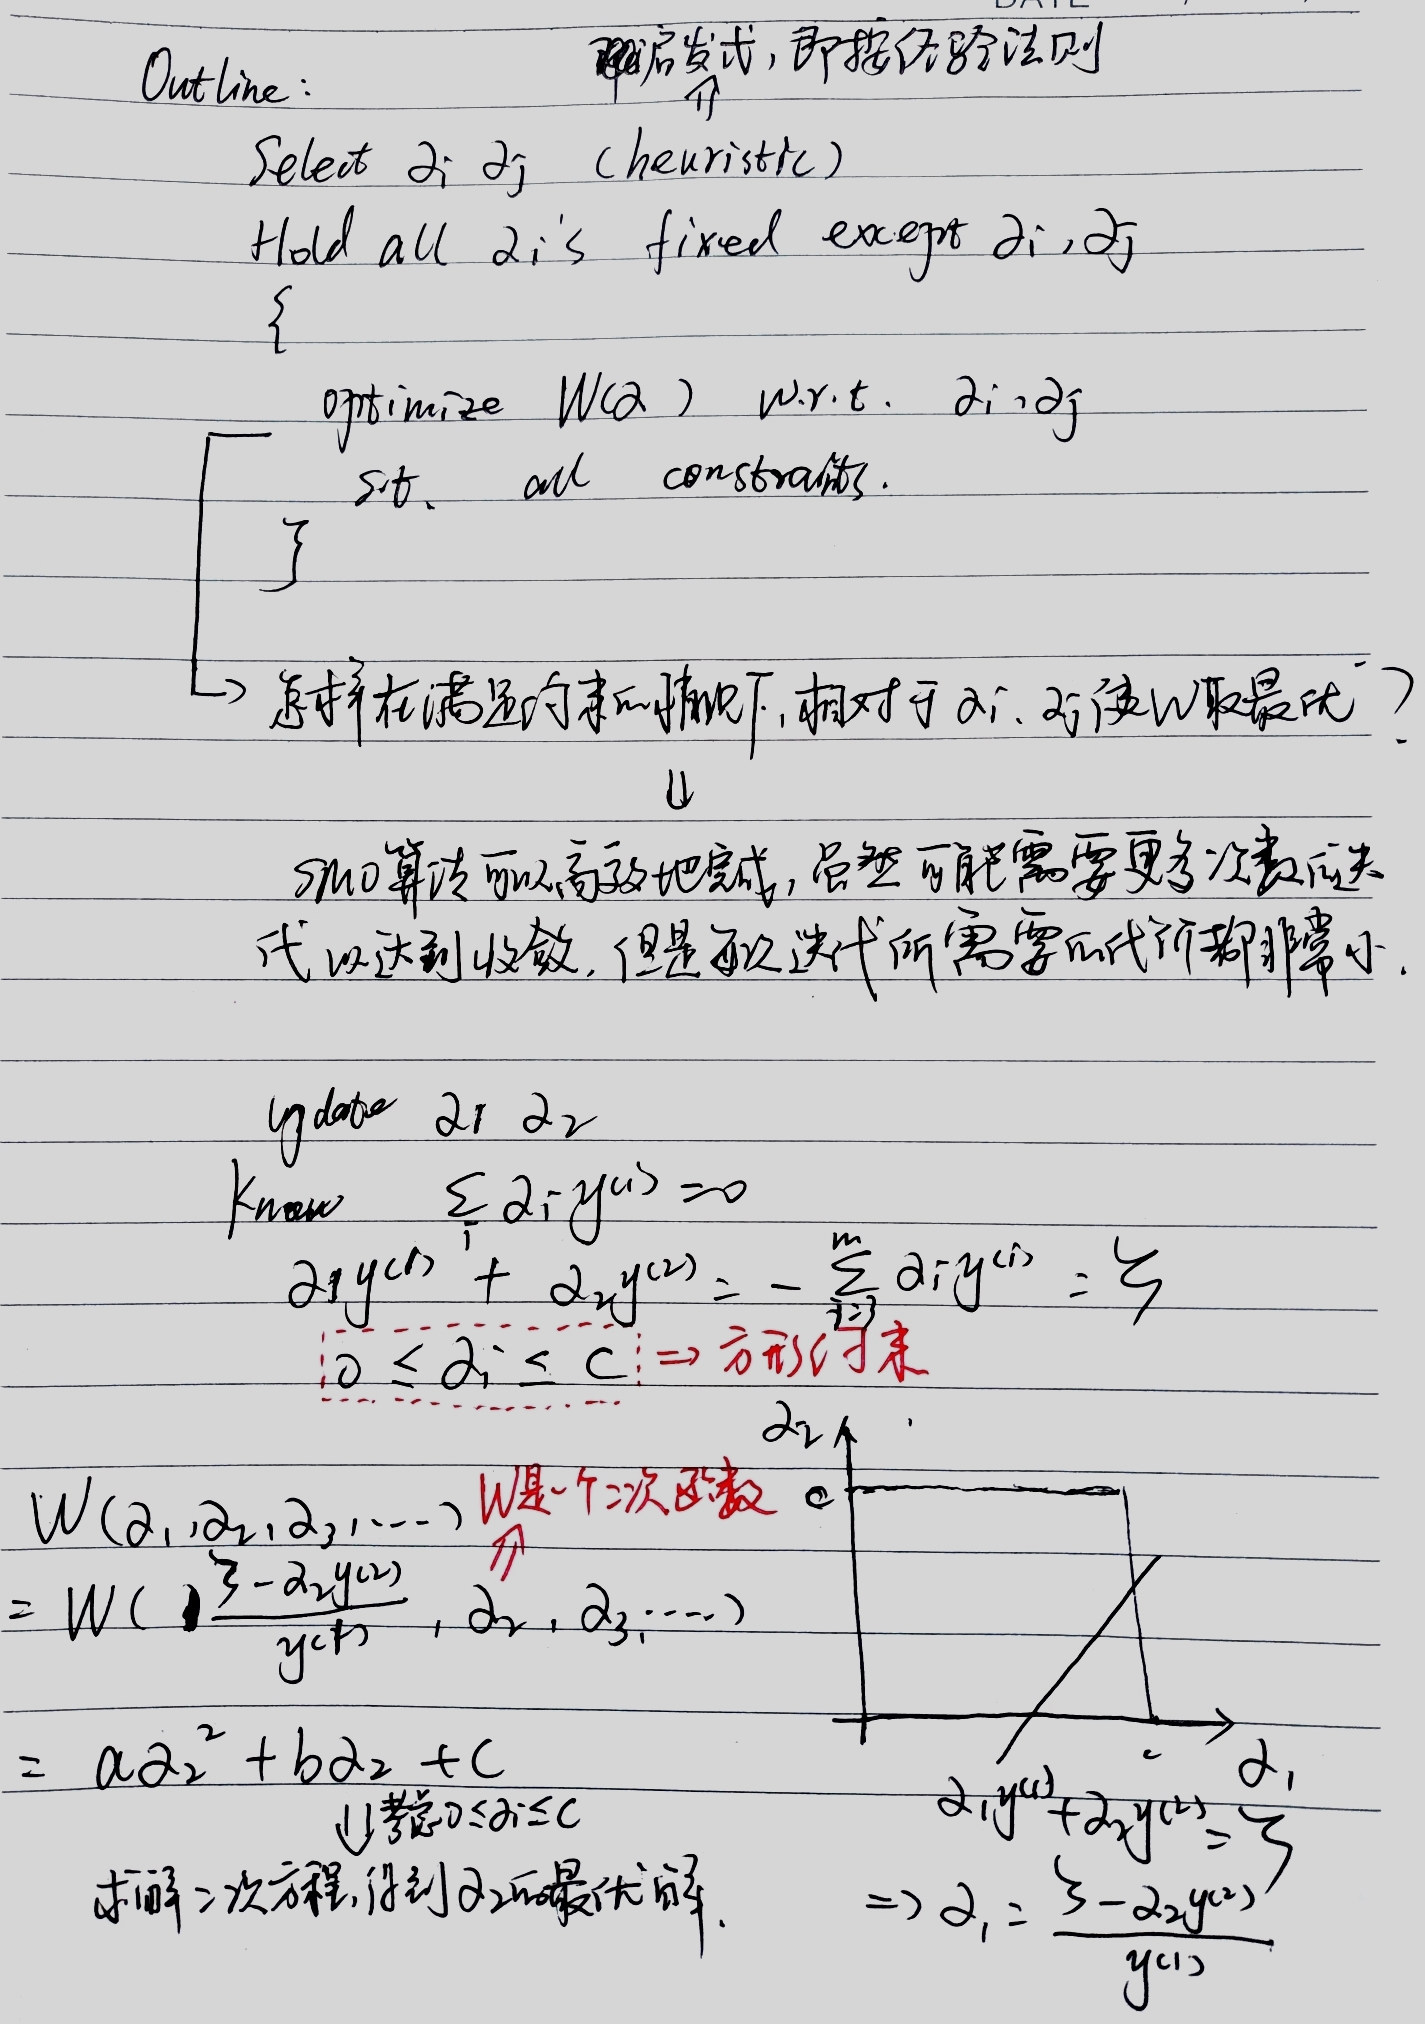 DATE
启发式，即按经验法则
⇑
Outline:
Select αi αj (heuristic)
Hold all αi's fixed except αi, αj
{
optimize W(α) w.r.t. αi, αj
s.t. all constraints.
}
→ 怎样在满足约束的情况下，相对于αi、αj使W取最优？
⇓
SMO算法可以高效地完成，虽然可能需要更多次数的迭
代以达到收敛，但是每次迭代所需要的代价都非常小.
update α1 α2
Know ∑i αi y(i) = 0
α1y(1) + α2y(2) = - ∑i=3^m αi y(i) = ζ
0 ≤ αi ≤ C ⇒ 方形约束
W(α1, α2, α3, ....) W是一个二次函数
⇑
= W( (ζ - α2y(2)) / y(1) , α2, α3, ....)
= aα2² + bα2 + c
⇓ 考虑0≤αi≤C
求解二次方程，得到α2的最优解.
α2
C
c
α1
α1y(1) + α2y(2) = ζ
=> α1 = (ζ - α2y(2)) / y(1)